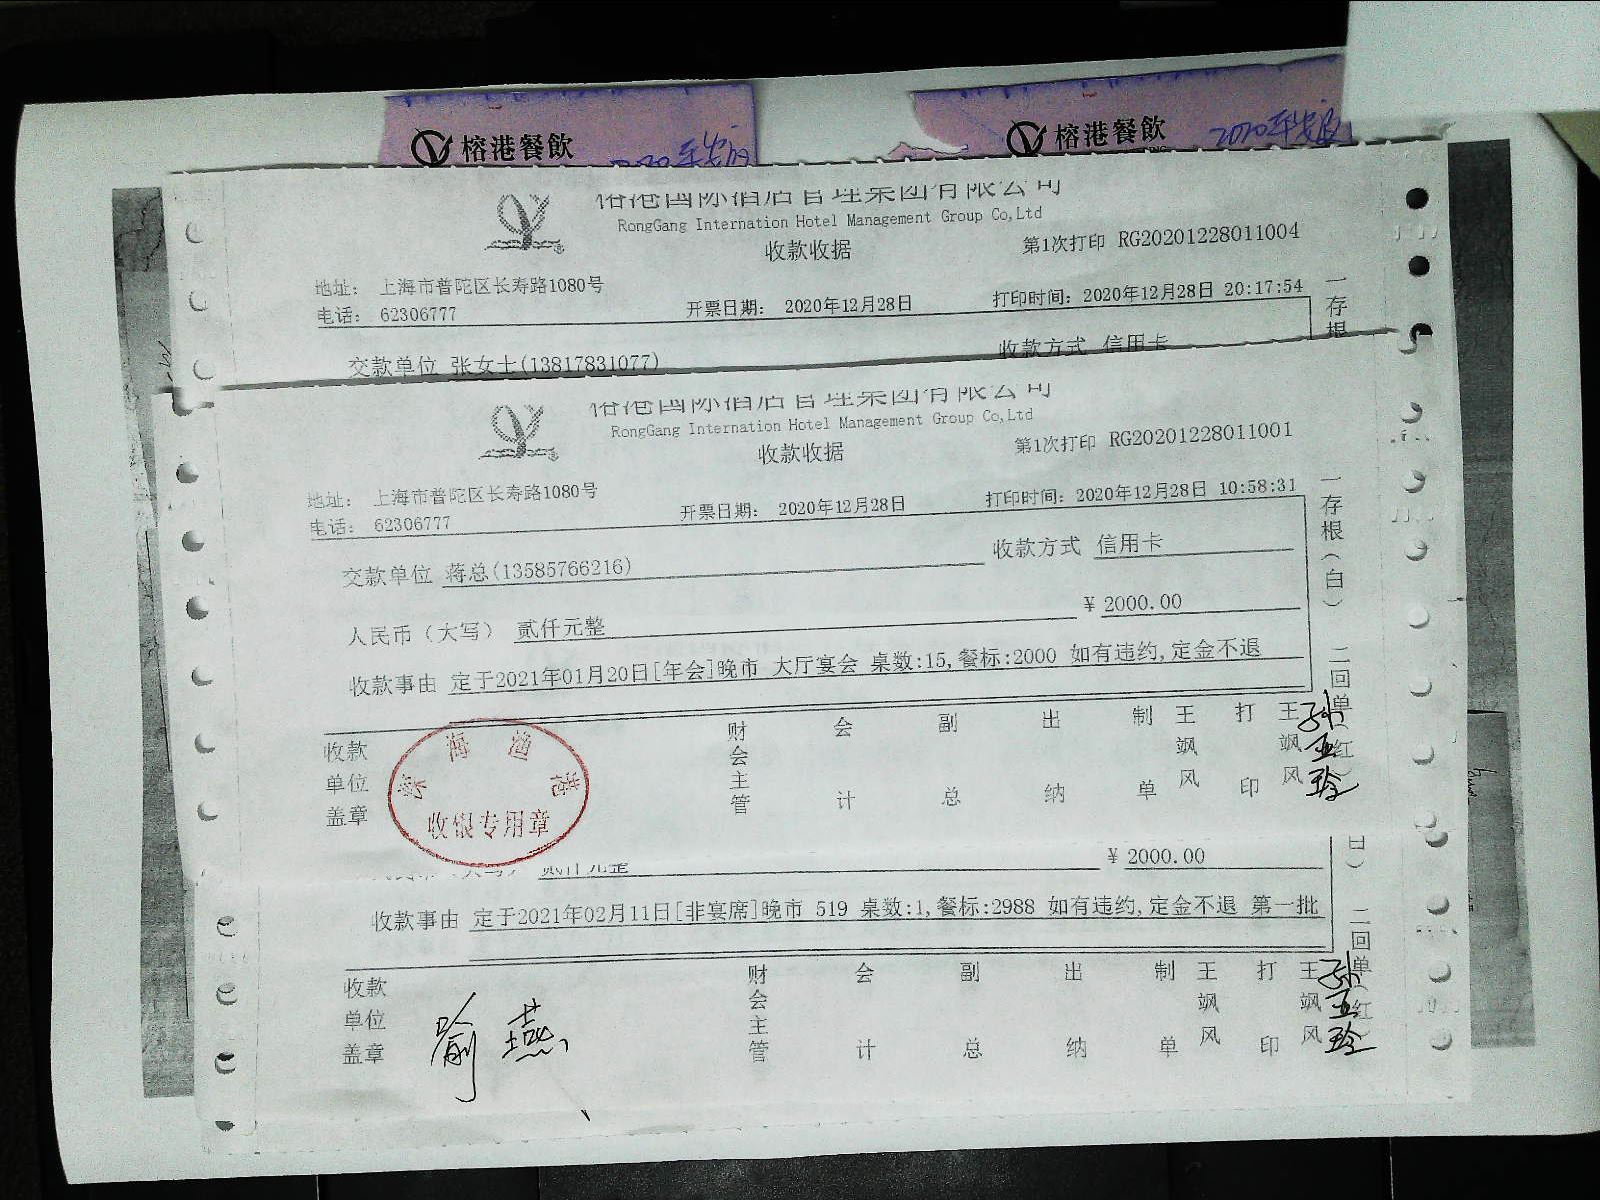 榕港餐飲
2020年
榕港餐飲
2020年
榕港国际酒店管理集团有限公司
RongGang Internation Hotel Management Group Co,Ltd
收款收据
第1次打印 RG20201228011004
地址： 上海市普陀区长寿路1080号
电话： 62306777
开票日期： 2020年12月28日
打印时间：2020年12月28日 20:17:54
一存根
交款单位 张女士(13817831077)
收款方式 信用卡
榕港国际酒店管理集团有限公司
RongGang Internation Hotel Management Group Co,Ltd
收款收据
第1次打印 RG20201228011001
地址： 上海市普陀区长寿路1080号
电话： 62306777
开票日期： 2020年12月28日
打印时间：2020年12月28日 10:58:31
一存根（白） 二回单（红）
交款单位 蒋总(13585766216)
收款方式 信用卡
人民币（大写） 贰仟元整
¥ 2000.00
收款事由 定于2021年01月20日[年会]晚市 大厅宴会 桌数:15,餐标:2000 如有违约,定金不退
收款单位盖章
收银专用章
财会主管
会计
副总
出纳
制单
王飒风
打印
王飒风
孙亚玲
贰仟元整
¥ 2000.00
白）
收款事由 定于2021年02月11日[非宴席]晚市 519 桌数:1,餐标:2988 如有违约,定金不退 第一批
二回单（红
收款单位盖章
喻燕
财会主管
会计
副总
出纳
制单
王飒风
打印
王飒风
孙亚玲